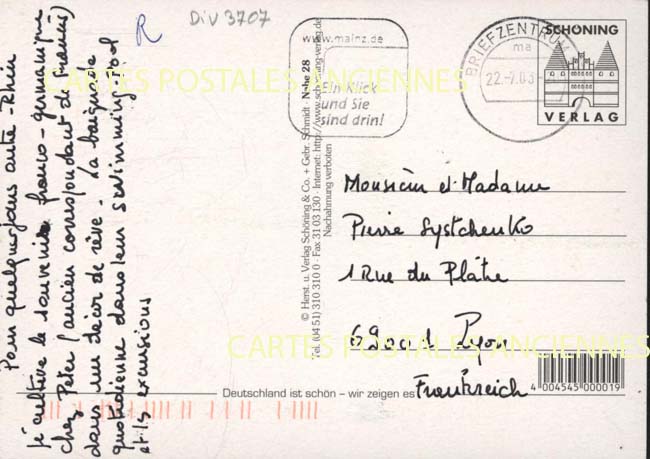 Div 3707
R
www.mainz.de
Ein Klick
und Sie
sind drin!
BRIEFZENTRUM
ma
SCHÖNING
VERLAG
CARTES POSTALES ANCIENNES
Pour quelques jours outre-Rhin
je cultive le souvenir franco-germanique
chez Peter (ancien correspondant de Francis)
dans un décor de rêve - La baignade
quotidienne dans leur swimming pool
et les excursions
© Herst. u. Verlag Schöning & Co. + Gebr. Schmidt · Nahe 28
Tel. (04 51) 310 310 0 · Fax 31 03 130 · Internet: http://www.schoening-verlag.de
Nachahmung verboten
Monsieur et Madame
Pierre Systchenko
1 Rue du Plâtre
69001 Lyon
Frankreich
CARTES POSTALES ANCIENNES
Deutschland ist schön – wir zeigen es
4 004545 000019